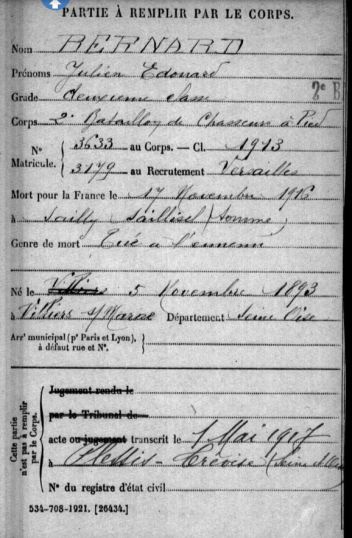 PARTIE À REMPLIR PAR LE CORPS.
Nom BERNARD
Prénoms Julien Edouard
Grade deuxième classe
2e B
Corps 2e Bataillon de Chasseurs à Pied
N° 3633 au Corps. — Cl. 1913
Matricule. 3179 au Recrutement Versailles
Mort pour la France le 17 Novembre 1916
à Sailly Saillisel (Somme)
Genre de mort Tué à l'ennemi
Né le Villiers 5 Novembre 1893
à Villiers s/Marne Département Seine Oise
Arrt municipal (pr Paris et Lyon),
à défaut rue et N°.
Cette partie
n'est pas à remplir
par le Corps.
Jugement rendu le
par le Tribunal de
acte ou jugement transcrit le 1 Mai 1917
à Plessis-Trévise (Seine et Oise)
N° du registre d'état civil
534-708-1921. [26434.]